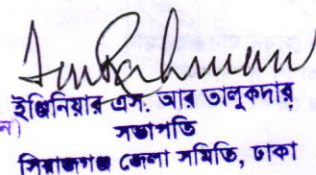 ইঞ্জিনিয়ার এস. আর তালুকদার
ন)
সভাপতি
সিরাজগঞ্জ জেলা সমিতি, ঢাকা